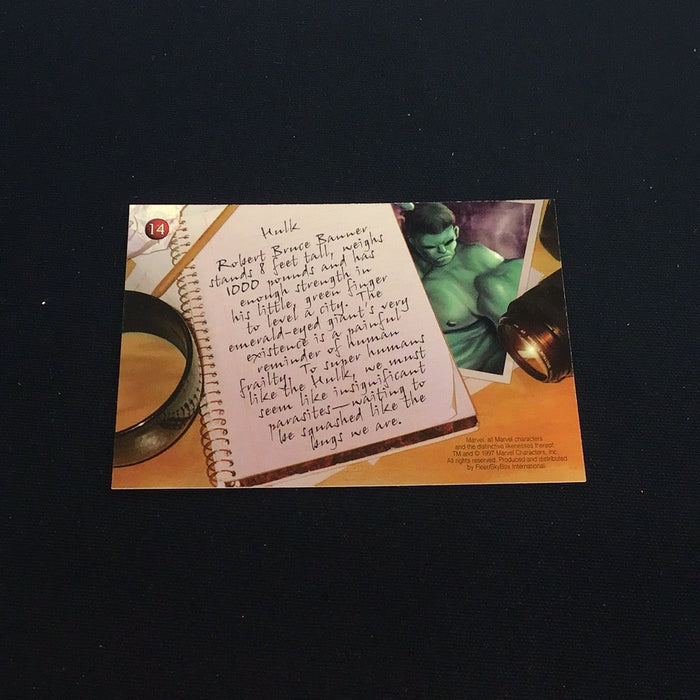 14
Hulk
Robert Bruce Banner,
stands 8 feet tall, weighs
1000 pounds and has
enough strength in
his little, green finger
to level a city. The
emerald-eyed giant's very
existence is a painful
reminder of human
frailty. To super humans
like the Hulk, we must
seem like insignificant
parasites—waiting to
be squashed like the
bugs we are.
Marvel, all Marvel characters
and the distinctive likenesses thereof:
TM and © 1997 Marvel Characters, Inc.
All rights reserved. Produced and distributed
by Fleer/SkyBox International